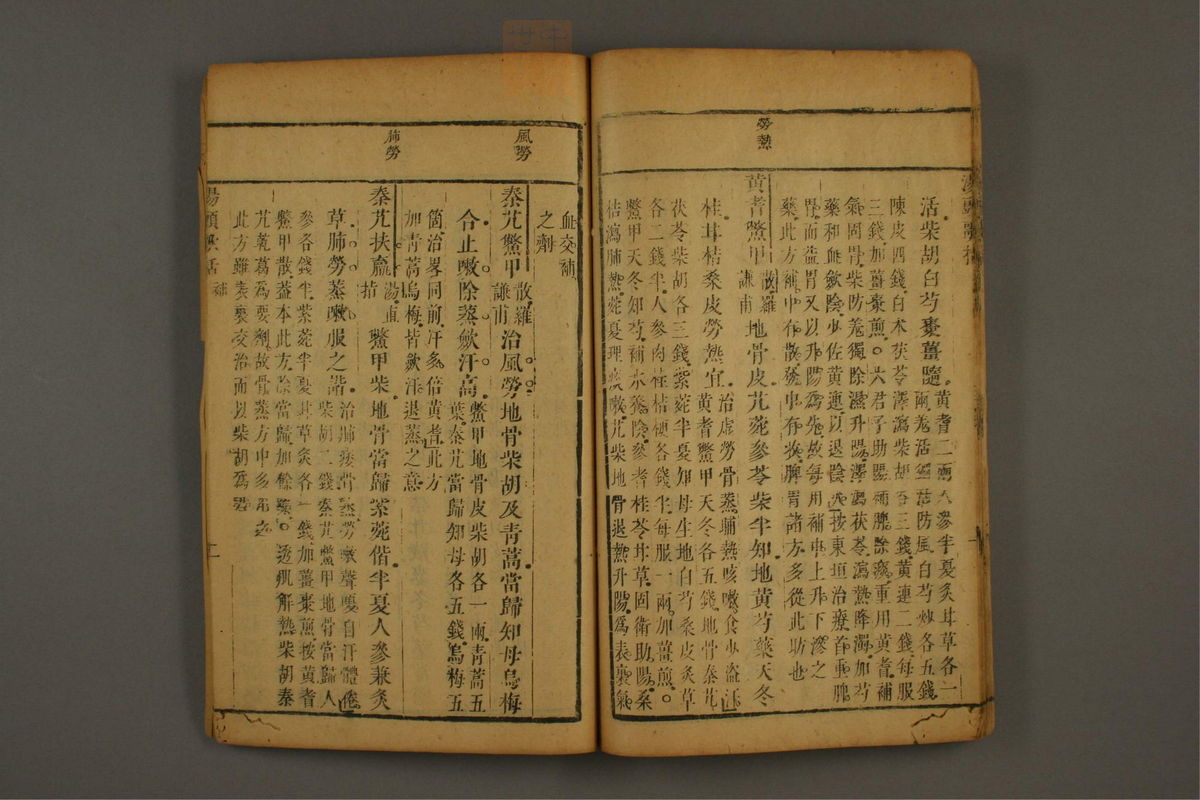 勞熱
活柴胡白芍棗薑隨
黃耆二兩人參半夏炙甘草各一
兩羌活獨活防風白芍炒各五錢
陳皮四錢白朮茯苓澤瀉柴胡各三錢黃連二錢每服
三錢加薑棗煎。六君子助陽補脾除痰重用黃耆補
氣固胃柴防羌獨除濕升陽澤瀉茯苓瀉熱降濁加芍
藥和血歛陰少佐黃連以退陰火按東垣治療首重脾
胃而益胃又以升陽為先故每用補中上升下滲之
藥此方補中有散發中有收脾胃諸方多從此昉也
黃耆鱉甲散羅謙甫地骨皮艽菀參苓柴半知地黃芍藥天冬
桂甘桔桑皮勞熱宜
治虛勞骨蒸晡熱咳嗽食少盜汗
黃耆鱉甲天冬各五錢地骨秦艽
茯苓柴胡各三錢紫菀半夏知母生地白芍桑皮炙草
各二錢半人參肉桂桔梗各錢半每服一兩加薑煎。
鱉甲天冬知芍補水養陰參耆桂苓甘草固衛助陽桑
桔瀉肺熱菀夏理痰嗽艽柴地骨退熱升陽為表裏氣
血交補
之劑
風勞
秦艽鱉甲散羅謙甫治風勞地骨柴胡及青蒿當歸知母烏梅
合止嗽除蒸歛汗高
鱉甲地骨皮柴胡各一兩青蒿五
葉秦艽當歸知母各五錢烏梅五
箇治畧同前汗多倍黃耆此方
加青蒿烏梅皆歛汗退蒸之意
肺勞
秦艽扶羸湯直指鱉甲柴地骨當歸紫菀偕半夏人參兼炙
草肺勞蒸嗽服之諧
治肺痿骨蒸勞嗽聲嗄自汗體倦
柴胡二錢秦艽鱉甲地骨當歸人
參各錢半紫菀半夏甘草炙各一錢加薑棗煎按黃耆
鱉甲散蓋本此方除當歸加餘藥。透肌解熱柴胡秦
艽乾葛為要劑故骨蒸方中多用之
此方雖表裏交治而以柴胡為君
湯頭歌括 補